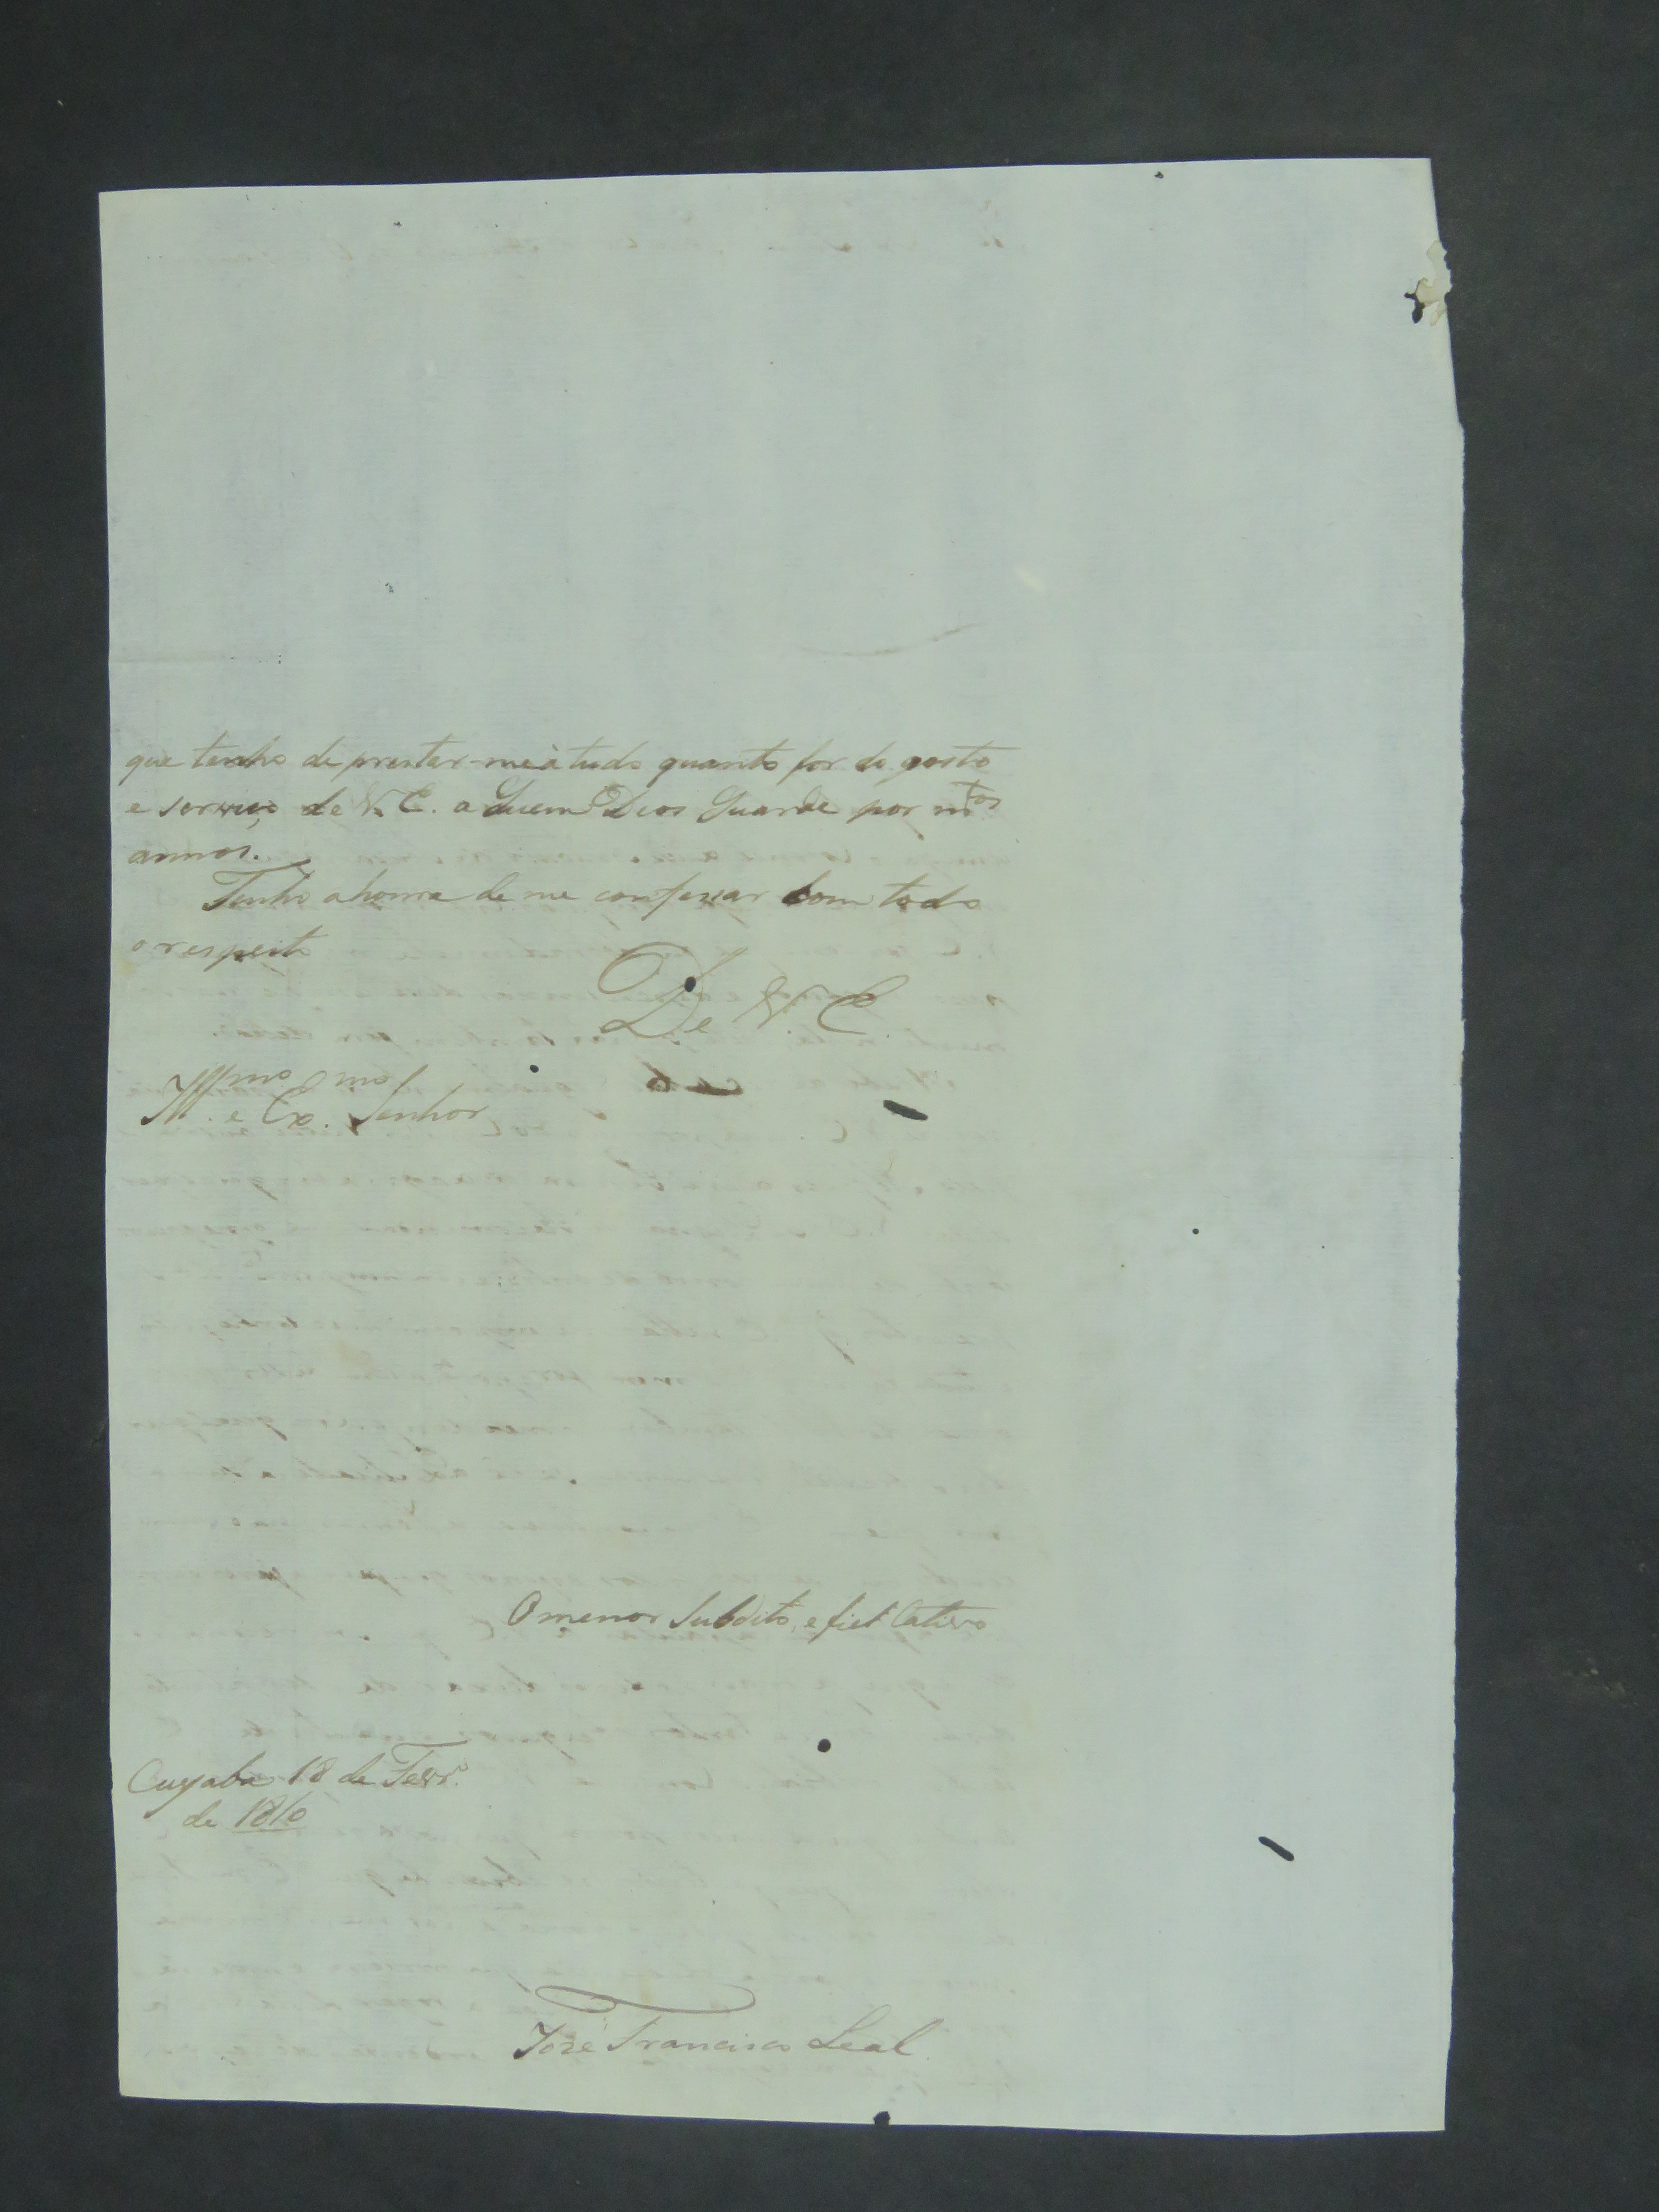 que tenho de prestar-me à tudo quanto for do gosto
e serviço de V. E. a Quem Deos Guarde por mtos
annos.
Tenho a honra de me confessar Com todo
o respeito
De V. E.
Illmo e Exmo Senhor
O menor Subdito, e fiel Cativo
Cuyaba 18 de Fevro
de 1810
José Francisco Leal